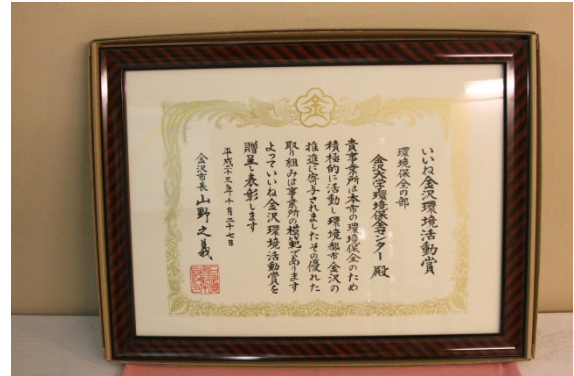 金
いいね金沢環境活動賞
環境保全の部
金沢大学環境保全センター殿
貴事業所は本市の環境保全のため
積極的に活動し環境都市金沢の
推進に寄与されましたその優れた
取り組みは事業所の模範であります
よっていいね金沢環境活動賞を
贈呈し表彰します
平成二十三年十月二十七日
金沢市長 山野之義